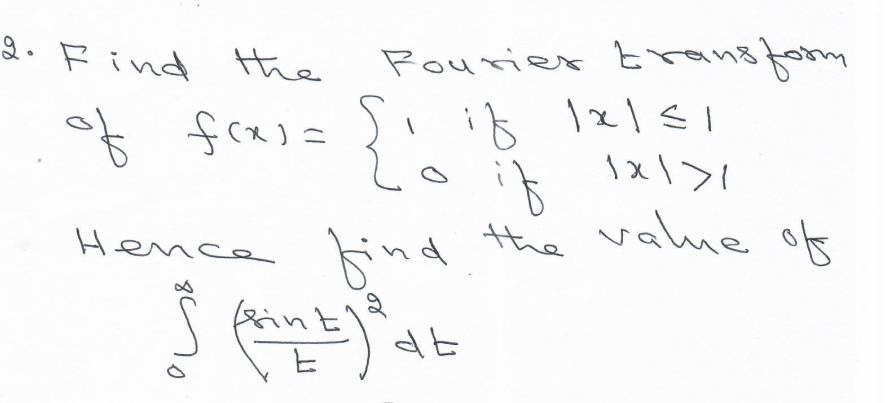 2. Find the Fourier transform
of f(x) = { 1 if |x| ≤ 1
0 if |x| > 1
Hence find the value of
∞∫0 (sin t / t)² dt